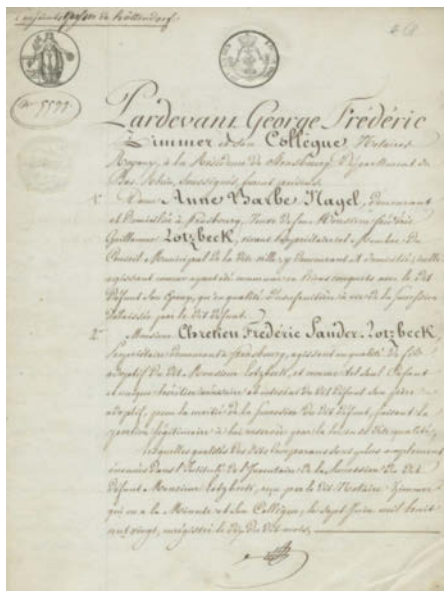 de Hüttendorf.
No. 5599
Pardevant George Frédéric
Zimmer et son Collègue, Notaires
Royaux, à la Résidence de Strasbourg, Département du
Bas Rhin, soussignés, furent présens
1. Dame Anne Barbe Nagel, demeurant
et domiciliée à Strasbourg, Veuve de feu Monsieur Frédéric
Guillaume Lotzbeck, vivant propriétaire et Membre du
Conseil Municipal de la dite ville, y demeurant et domicilié, icelle
agissant comme ayant été commune en biens acquets avec le dit
défunt son époux, qu'en qualité d'usufruitière à vie de la succession
délaissée par le dit défunt.
2. Monsieur Chretien Frédéric Sander-Lotzbeck,
propriétaire demeurant à Strasbourg, agissant en qualité de fils
adoptif du dit Monsieur Lotzbeck, et comme tel seul enfant
et unique héritier ab intestat du dit défunt son père
adoptif, pour la moitié de la succession du dit défunt, faisant la
portion légitimaire à lui réservée par la loi en sa dite qualité,
lesquelles qualités des dits Comparans sont plus amplement
énoncées dans l'Intitulé de l'Inventaire de la succession du dit
défunt Monsieur Lotzbeck, reçu par le dit Notaire Zimmer
qui en a la Minute et son Collègue, le sept Juin mil huit
cent vingt, enregistré le dix du dit mois,